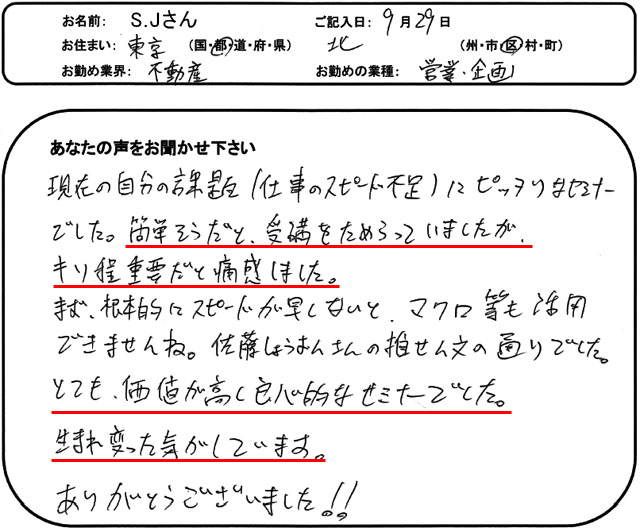 お名前: S.Jさん ご記入日: 9月29日
お住まい: 東京 (国・都・道・府・県) 北 (州・市・区・村・町)
お勤め業界: 不動産 お勤めの業種: 営業・企画
あなたの声をお聞かせ下さい
現在の自分の課題(仕事のスピード不足)にピッタリなセミナー
でした。簡単そうだと、受講をためらっていましたが、
キソ程重要だと痛感しました。
まず、根本的にスピードが早しないと、マクロ等も活用
できませんね。佐藤しょうおんさんの推せん文の通りでした。
とても、価値が高く良心的なセミナーでした。
生まれ変った気がしています。
ありがとうございました!!